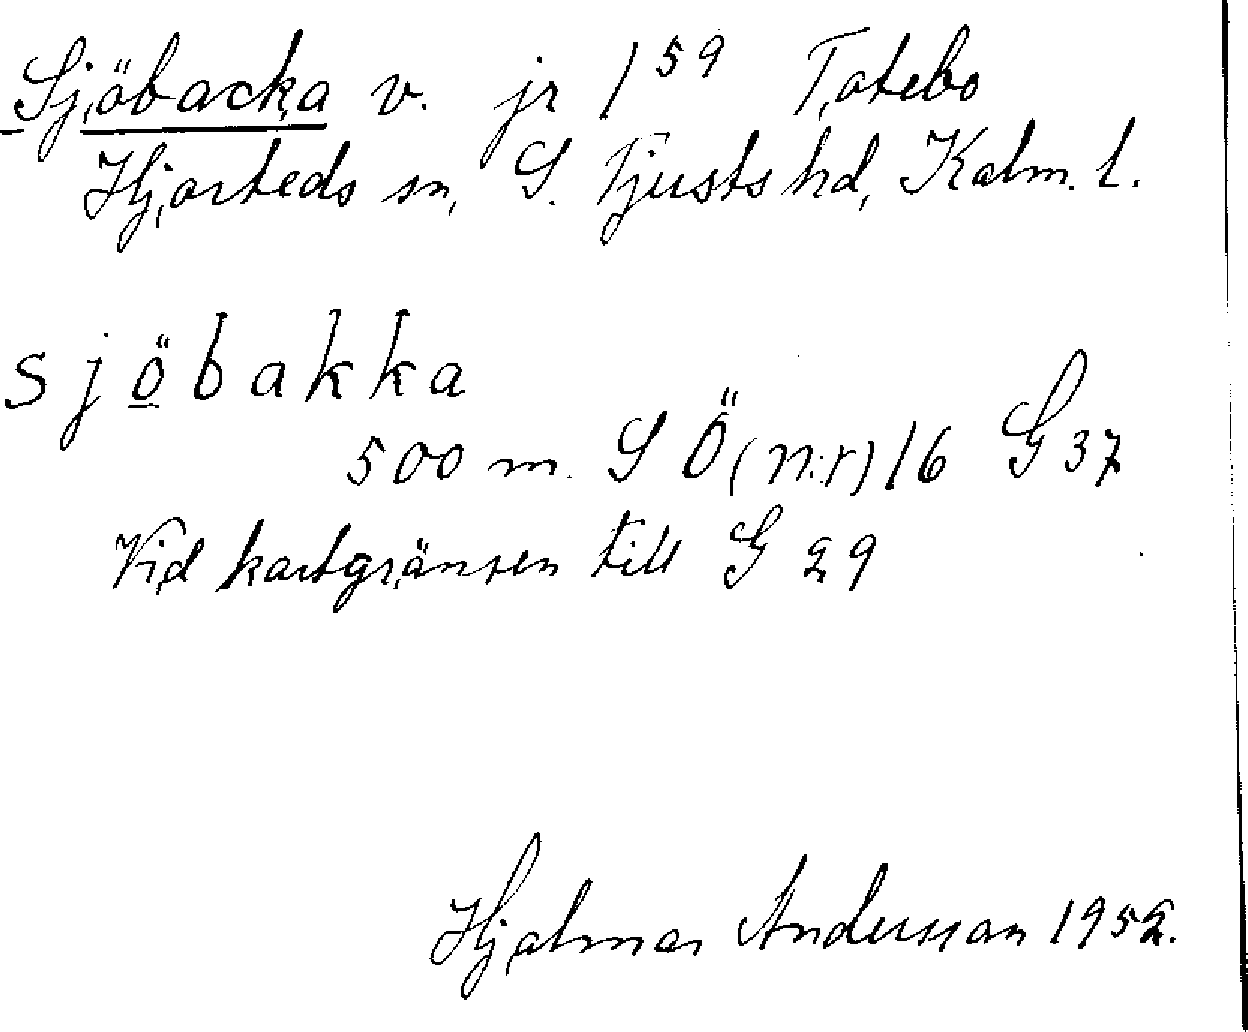 Sjöbacka v. jr 1⁵⁹ Totebo
Hjorteds sn, S. Tjusts hd, Kalm. l.
sjöbakka
500 m. SÖ (n:r) 16 G 37
Vid kartgränsen till G 29
Hjalmar Andersson 1952.